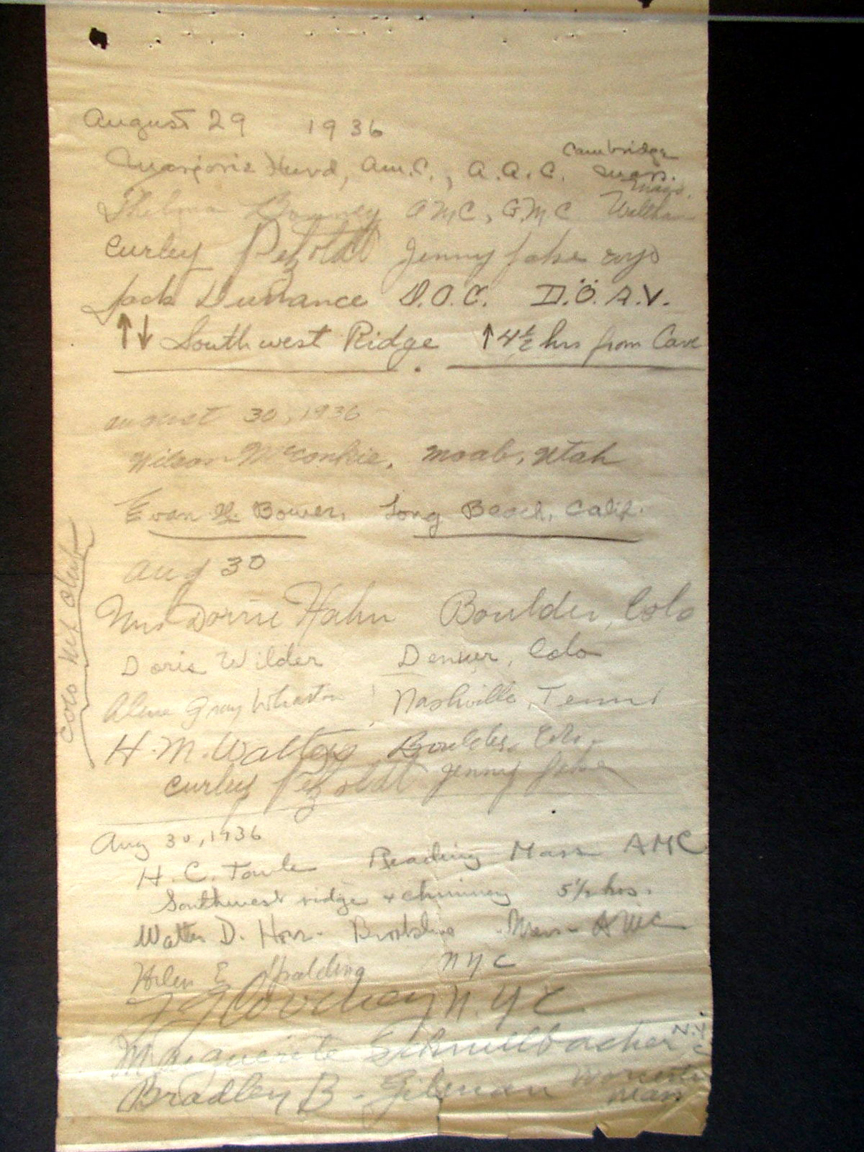 August 29 1936
Marjorie Hurd, Am.C., A.A.C. Cambridge Mass.
Thelma Bonney AMC, GMC Waltham Mass.
Curley Petzoldt Jenny Lake Wyo
Jack Durrance D.O.C. D.Ö.A.V.
↑↓ Southwest Ridge ↑4½ hrs from Cave
August 30, 1936
Wilson McConkie, Moab, Utah
Evan Bowen, Long Beach, Calif.
Aug 30
Colo Mt Club
Mrs Dorrie Hahn Boulder, Colo
Doris Wilder Denver, Colo
Alene Gray Wharton Nashville, Tenn
H. M. Walters Boulder, Colo.
Curley Petzoldt Jenny Lake
Aug 30, 1936
H. C. Towle Reading Mass AMC
Southwest ridge & chimney 5½ hrs.
Walter D. Howe Brookline Mass AMC
Helen E Spalding NYC
N.Y.C
Marguerite Schnellbacher N.Y.C
Bradley B. Gilman Worcester Mass